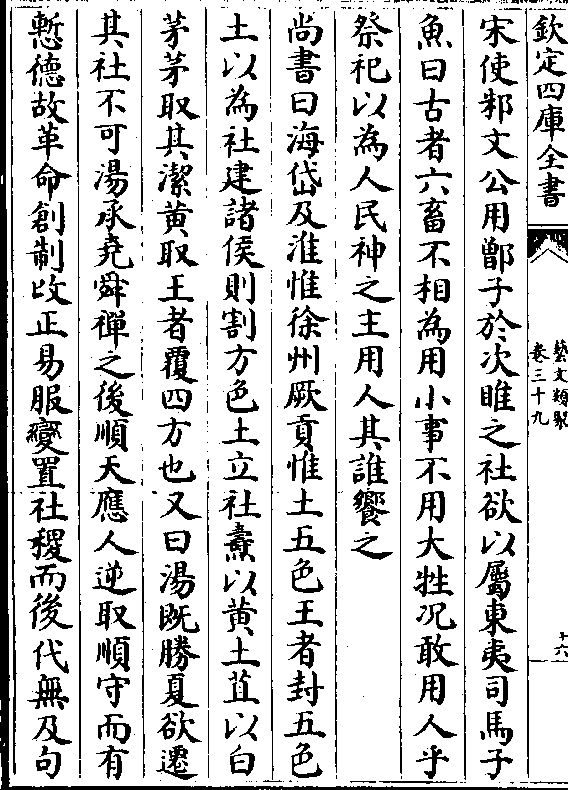 欽定四庫全書
藝文類聚
卷三十九
十六
宋使邾文公用鄫子於次睢之社欲以屬東夷司馬子
魚曰古者六畜不相為用小事不用大牲况敢用人乎
祭祀以為人民神之主用人其誰饗之
尚書曰海岱及淮惟徐州厥貢惟土五色王者封五色
土以為社建諸侯則割方色土立社燾以黄土苴以白
茅茅取其潔黄取王者覆四方也又曰湯既勝夏欲遷
其社不可湯承堯舜禪之後順天應人逆取順守而有
慙德故革命創制攺正易服變置社稷而後代無及句